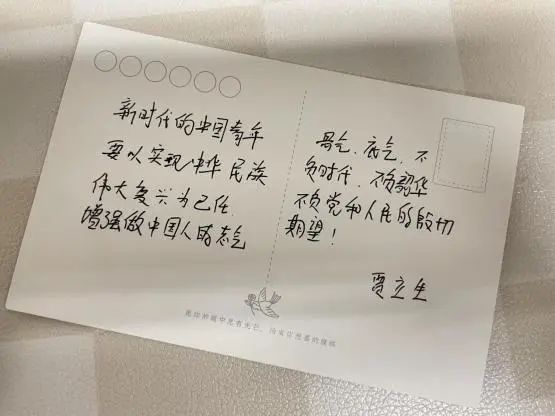 新时代的中国青年
要以实现中华民族
伟大复兴为己任
增强做中国人的志气
骨气、底气、不
负时代、不负韶华
不负党和人民的殷切
期望！
贾立生